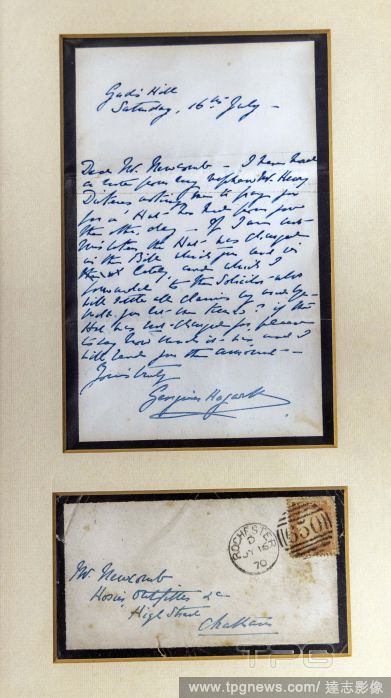 Gad's Hill
Saturday, 16th July –
Dear Mr. Newcomb – I have had
a note from my nephew Mr. Henry
Dickens asking me to pay you
for a Hat – he had from you
the other day – If I am not
mistaken the Hat was charged
in the Bill which you sent in
lately, and which I
forwarded to the Solicitor – who
will settle all claims
let me know? if the
Hat was not charged for, please
to say how much it was and I
will send you the amount –
Yours truly
Georgina Hogarth
ROCHESTER
D
JY 16
70
650
Mr. Newcomb
Hosier, Outfitter &c
High Street
Chatham
TPG
www.tpgnews.com/達志影像